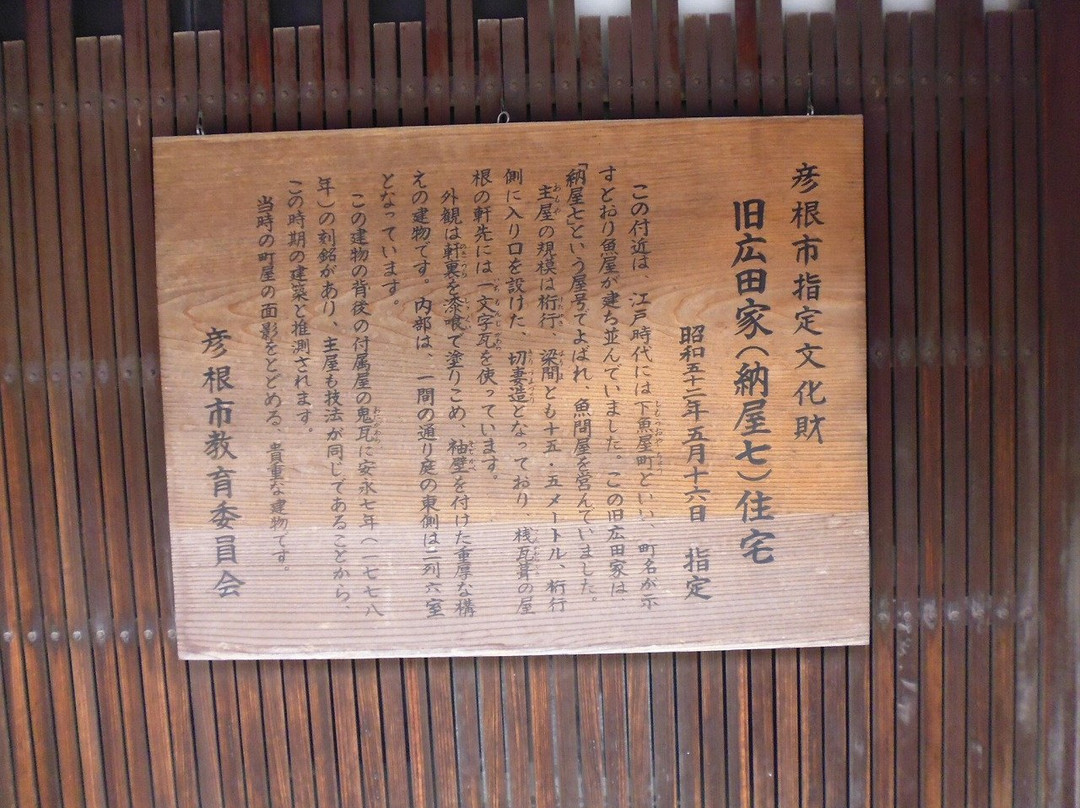 彦根市指定文化財
旧広田家(納屋七)住宅
昭和五十二年五月十六日 指定
この付近は、江戸時代には下魚屋町といい、町名が示
すとおり魚屋が建ち並んでいました。この旧広田家は、
「納屋七」という屋号でよばれ、魚問屋を営んでいました。
主屋の規模は桁行、梁間とも十五・五メートル、桁行
側に入り口を設けた、切妻造となっており、桟瓦葺の屋
根の軒先には一文字瓦を使っています。
外観は軒裏を漆喰で塗りこめ、袖壁を付けた重厚な構
えの建物です。内部は、一間の通り庭の東側は二列六室
となっています。
この建物の背後の付属屋の鬼瓦に安永七年(一七七八
年)の刻銘があり、主屋も技法が同じであることから、
この時期の建築と推測されます。
当時の町屋の面影をとどめる、貴重な建物です。
彦根市教育委員会